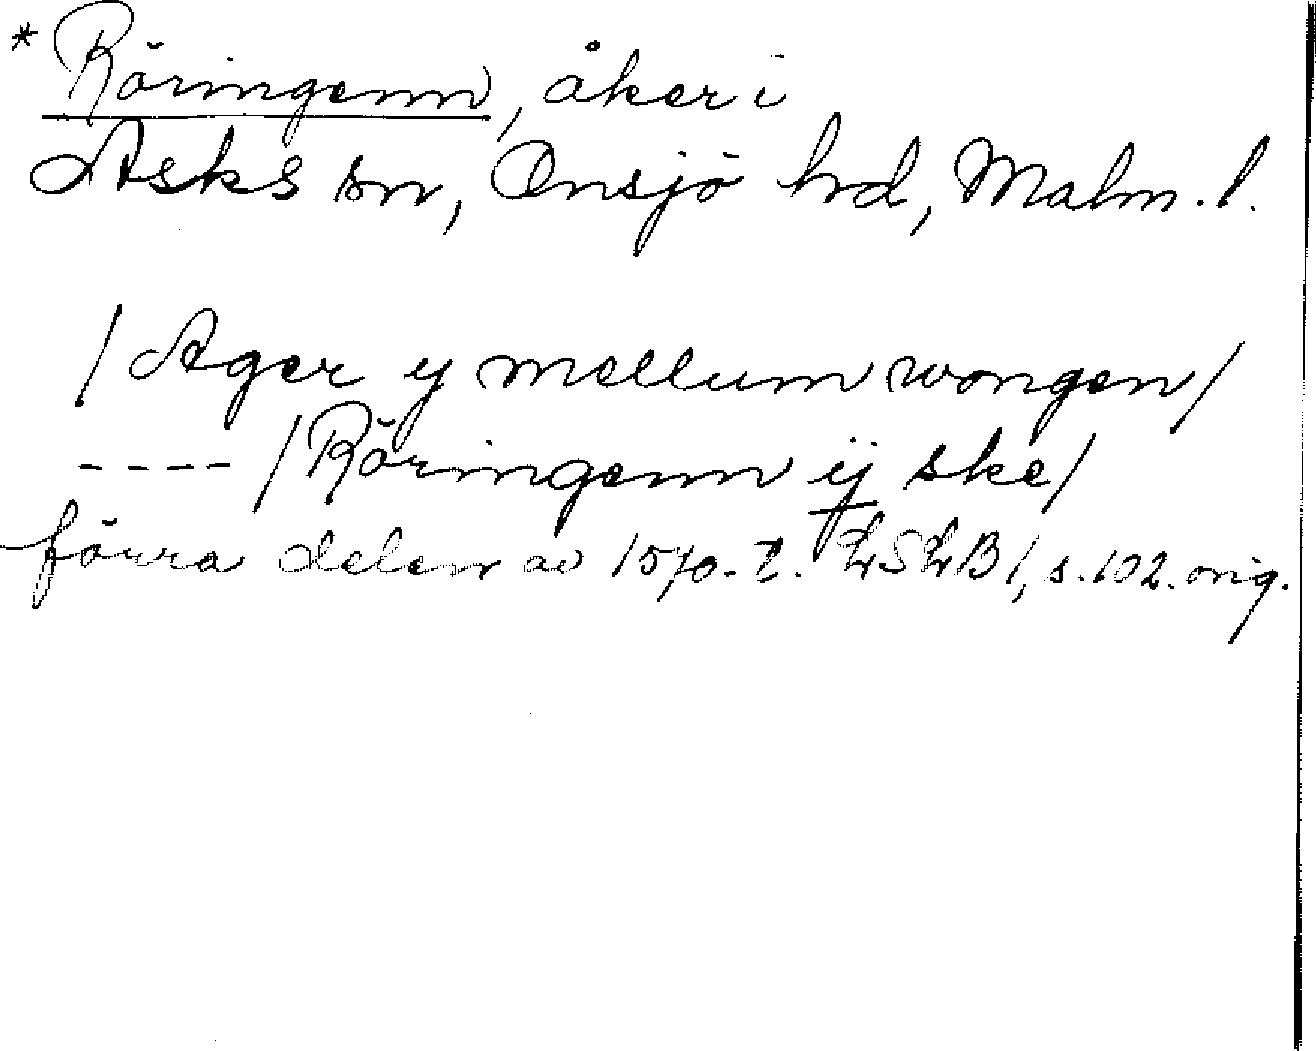 *Röringenn, åker i
Asks sn, Onsjö hd, Malm. l.
/Ager y mellum wongen/
---- /Röringenn ij ske/
förra delen av 1570-t. LSLB 1, s. 102. orig.